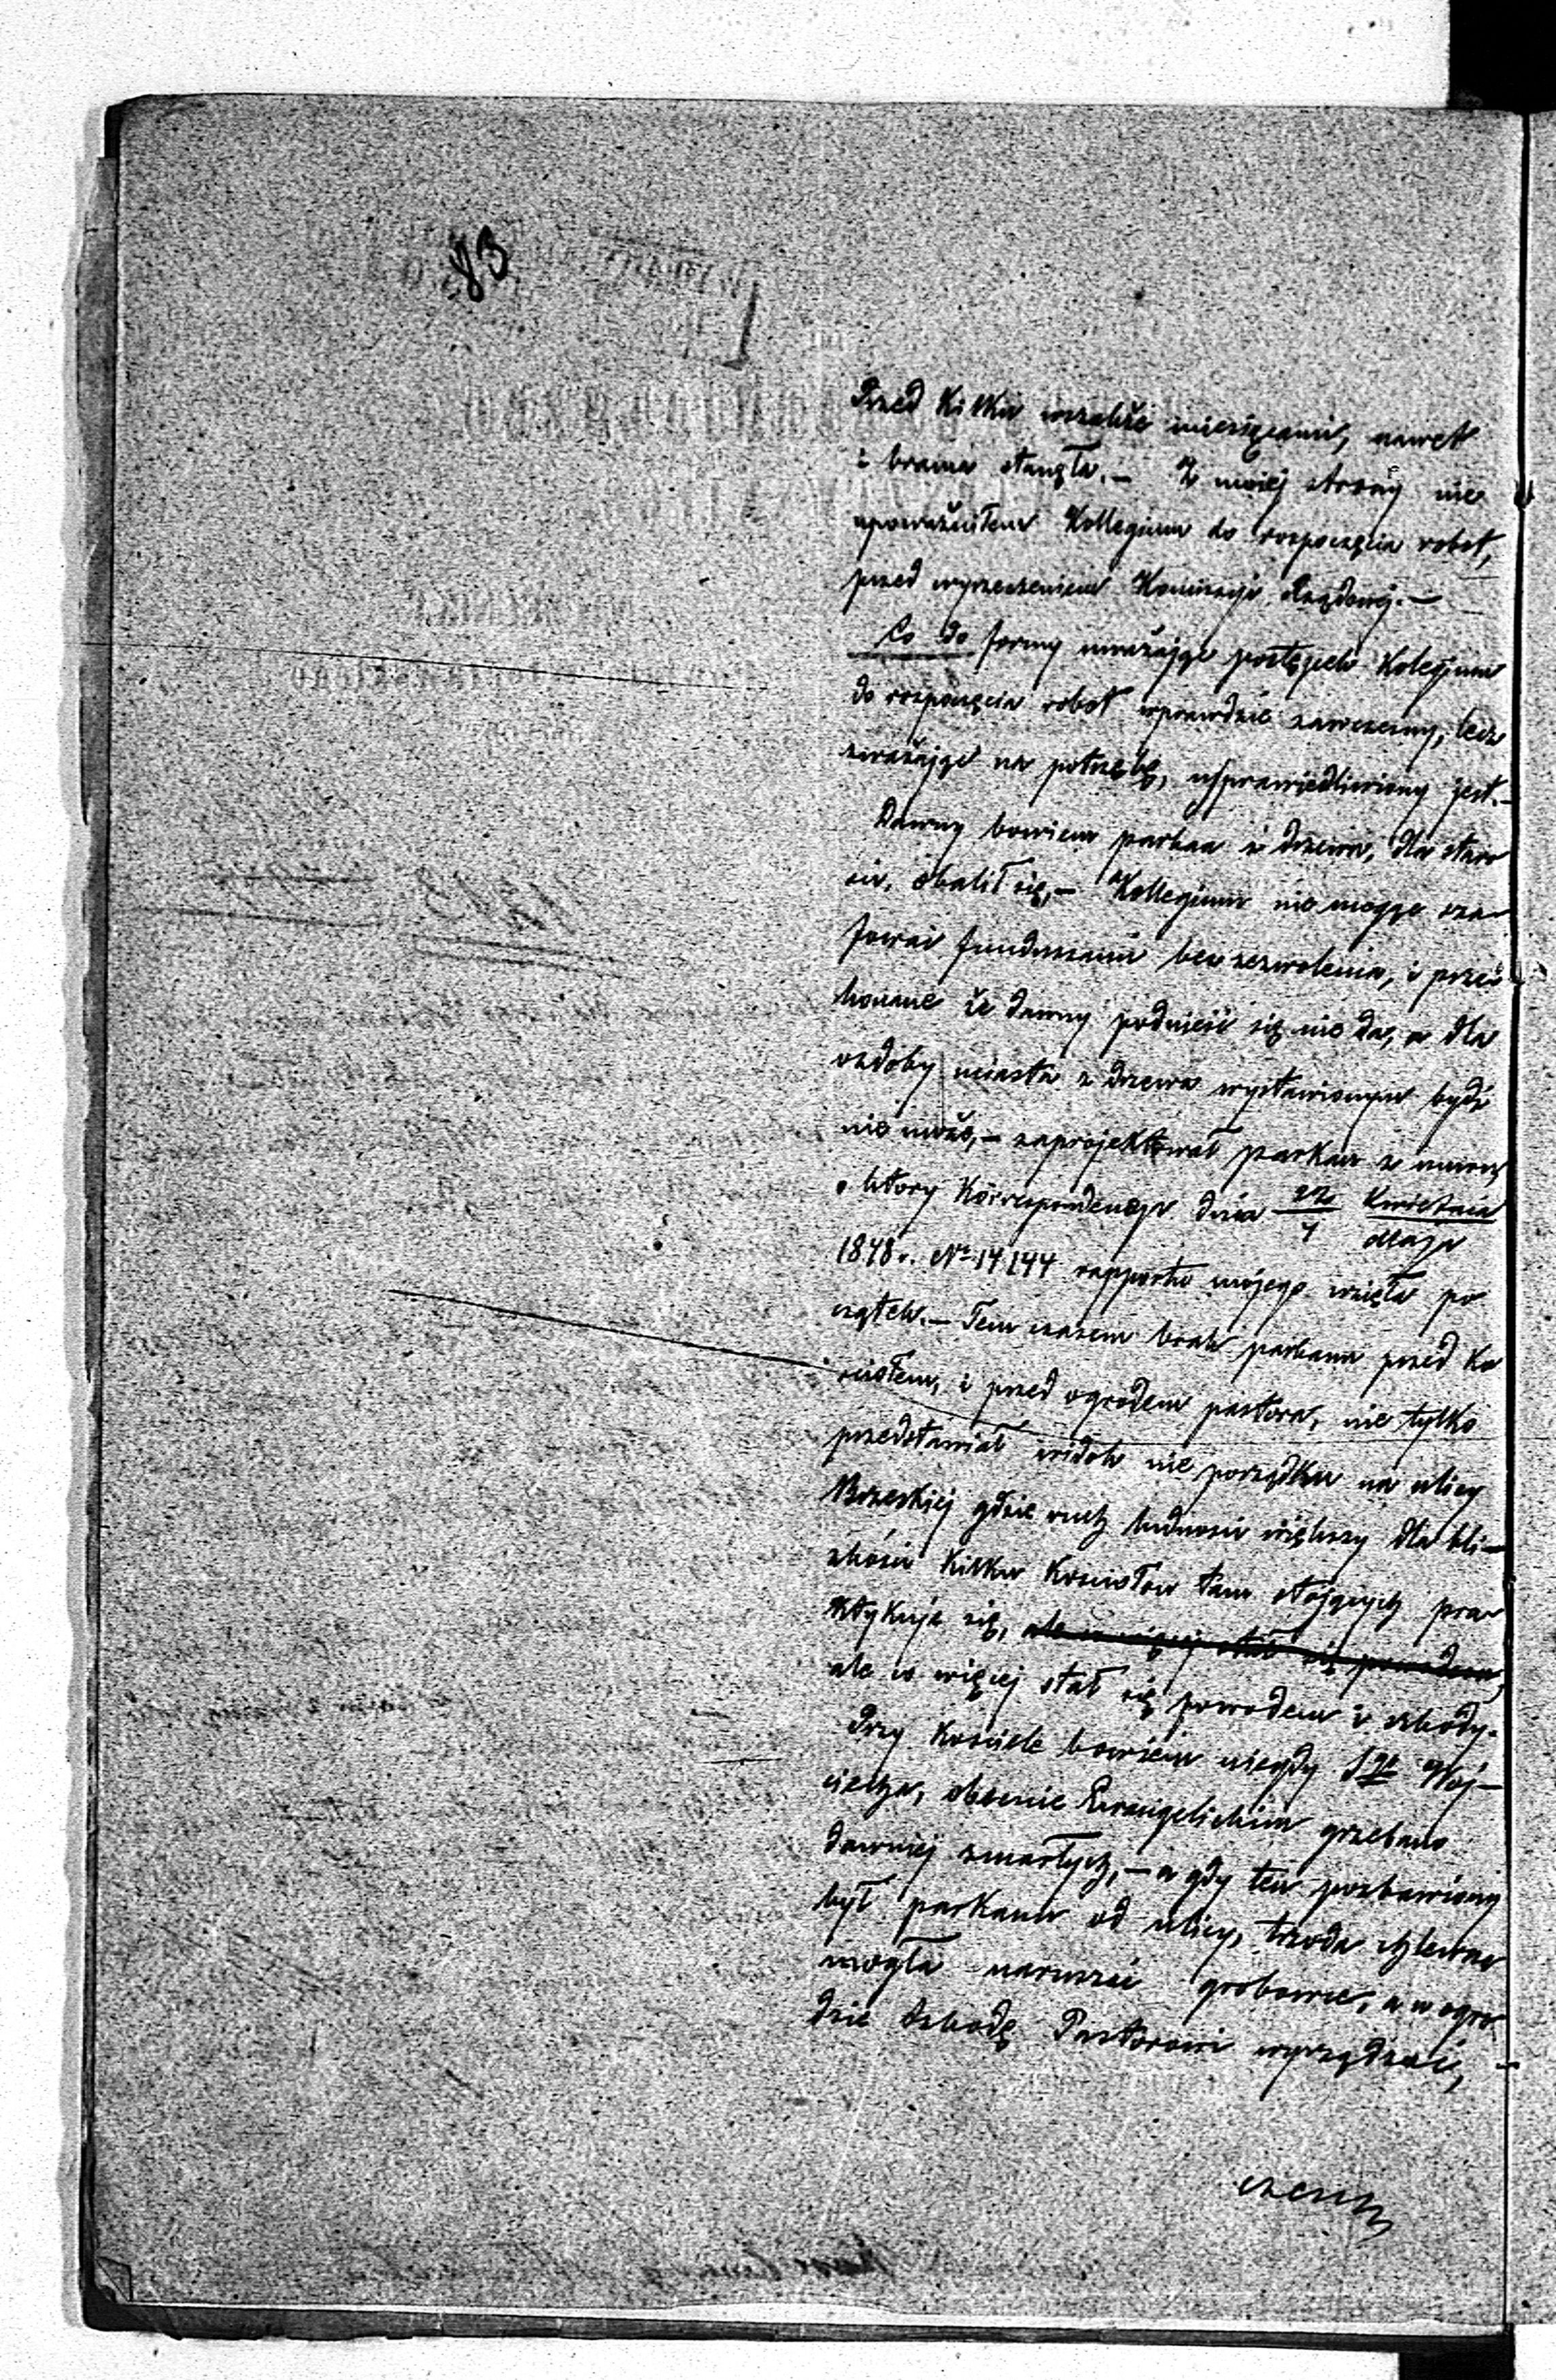 83
Przed kilku wszakże miesiącami, nawet
i brama stanęła. — Z mojej strony nie
upoważniłem Kollegium do rozpoczęcia robot,
przed wyrzeczeniem Kommissyi Rządowej. —
Co do formy uważając postępek Kolegium
do rozpoczęcia robot wprawdzie zawczesny, lecz
zważając na potrzebę, usprawiedliwiony jest. —
Dawny bowiem parkan z drzewa, dla staro
ści, obalił się, — Kollegium nie mogąc sza-
fować funduszami bez zezwolenia, i prze-
konane że dawny podnieść się nie da, a dla
ozdoby miasta z drzewa wystawionym bydź
nie może, — zaprojektował parkan z muru,
o który Korrespondencya dnia 22/4 Kwietnia/Maja
1848 r. Nr 14144 rapportu mojego wzięła po
czątek. — Tem czasem brak parkanu przed Ko
ściołem, i przed ogrodem pastora, nie tylko
przedstawiał widok nie porządku na ulicy
Brzeskiej gdzie ruch ludności większy dla bli-
skości kilku Kościołów tam stojących pra
ktykuje się, ale co więcej stał się powodem,
ale co więcej stał się powodem i szkody.
Przy Kościele bowiem niegdy Sgo Woj-
ciecha, obecnie Ewangelickim grzebano
dawniej zmarłych, — a gdy ten pozbawiony
był parkanu od ulicy, trzoda chlewna
mogła naruszać grobowce, a w ogro
dzie szkodę Pastorowi wyrządzać, —